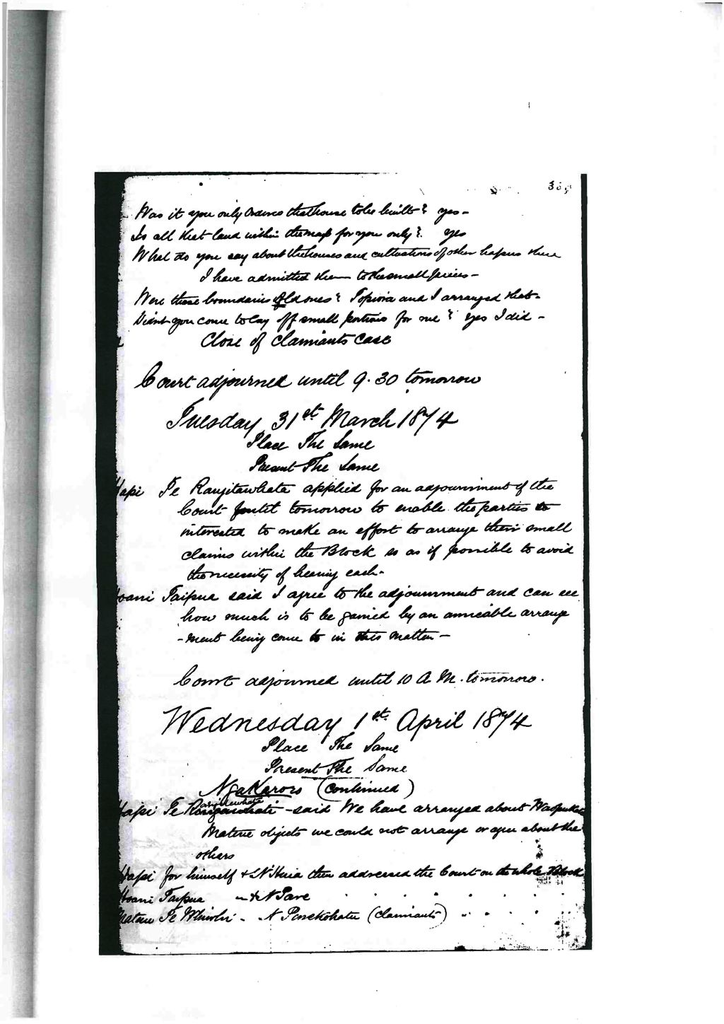 Was it you only Ordered that house to be built? yes -
Is all that land within the map for you only? yes
What do you say about the houses and cultivations of other hapus there
I have admitted them to the small pieces -
Were these boundaries old ones? Topiora and I arranged that -
Didnt you come to lay off small portions for me? yes I did -
Close of Claimants case
Court adjourned until 9.30 tomorrow
Tuesday 31st March 1874
Place The Same
Present The Same
Hapi Te Rangitawhata applied for an adjournment of the
Court until tomorrow to enable the parties
interested to make an effort to arrange their small
claims within the Block so as if possible to avoid
the necessity of hearing each -
Hoani Taipua said I agree to the adjournment and can see
how much is to be gained by an amicable arrange
-ment being come to in this matter -
Court adjourned until 10 A.M. tomorrow.
Wednesday 1st April 1874
Place The Same
Present The Same
Ngakaroro (continued)
Hapi Te - said We have arranged about
Matene objects we could not arrange or agree about the
others
Hapi for himself & N Huia then addressed the Court on the whole Block
Hoani Taipua - & N Pare " " " "
Te - N (claimants) " " " "